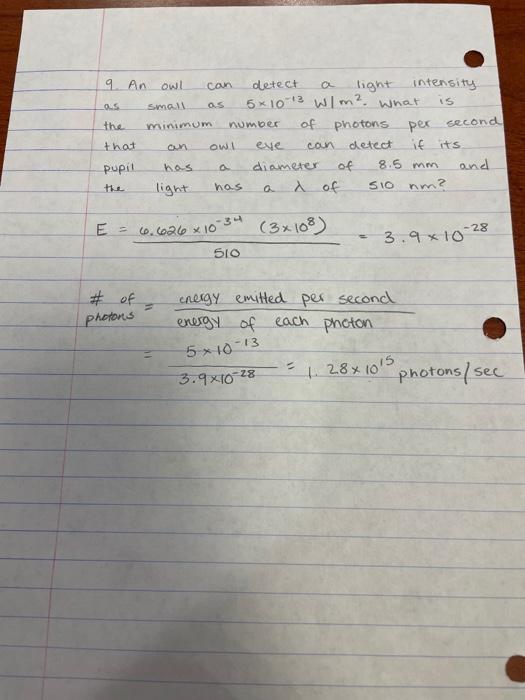 9. An owl can detect a light intensity
as small as 5×10⁻¹³ W/m². What is
the minimum number of photons per second
that an owl eye can detect if its
pupil has a diameter of 8.5 mm and
the light has a λ of 510 nm?
E = 6.626 ×10⁻³⁴ (3×10⁸) / 510 = 3.9 ×10⁻²⁸
# of photons = energy emitted per second / energy of each photon
= 5 ×10⁻¹³ / 3.9×10⁻²⁸ = 1.28 × 10¹⁵ photons/sec